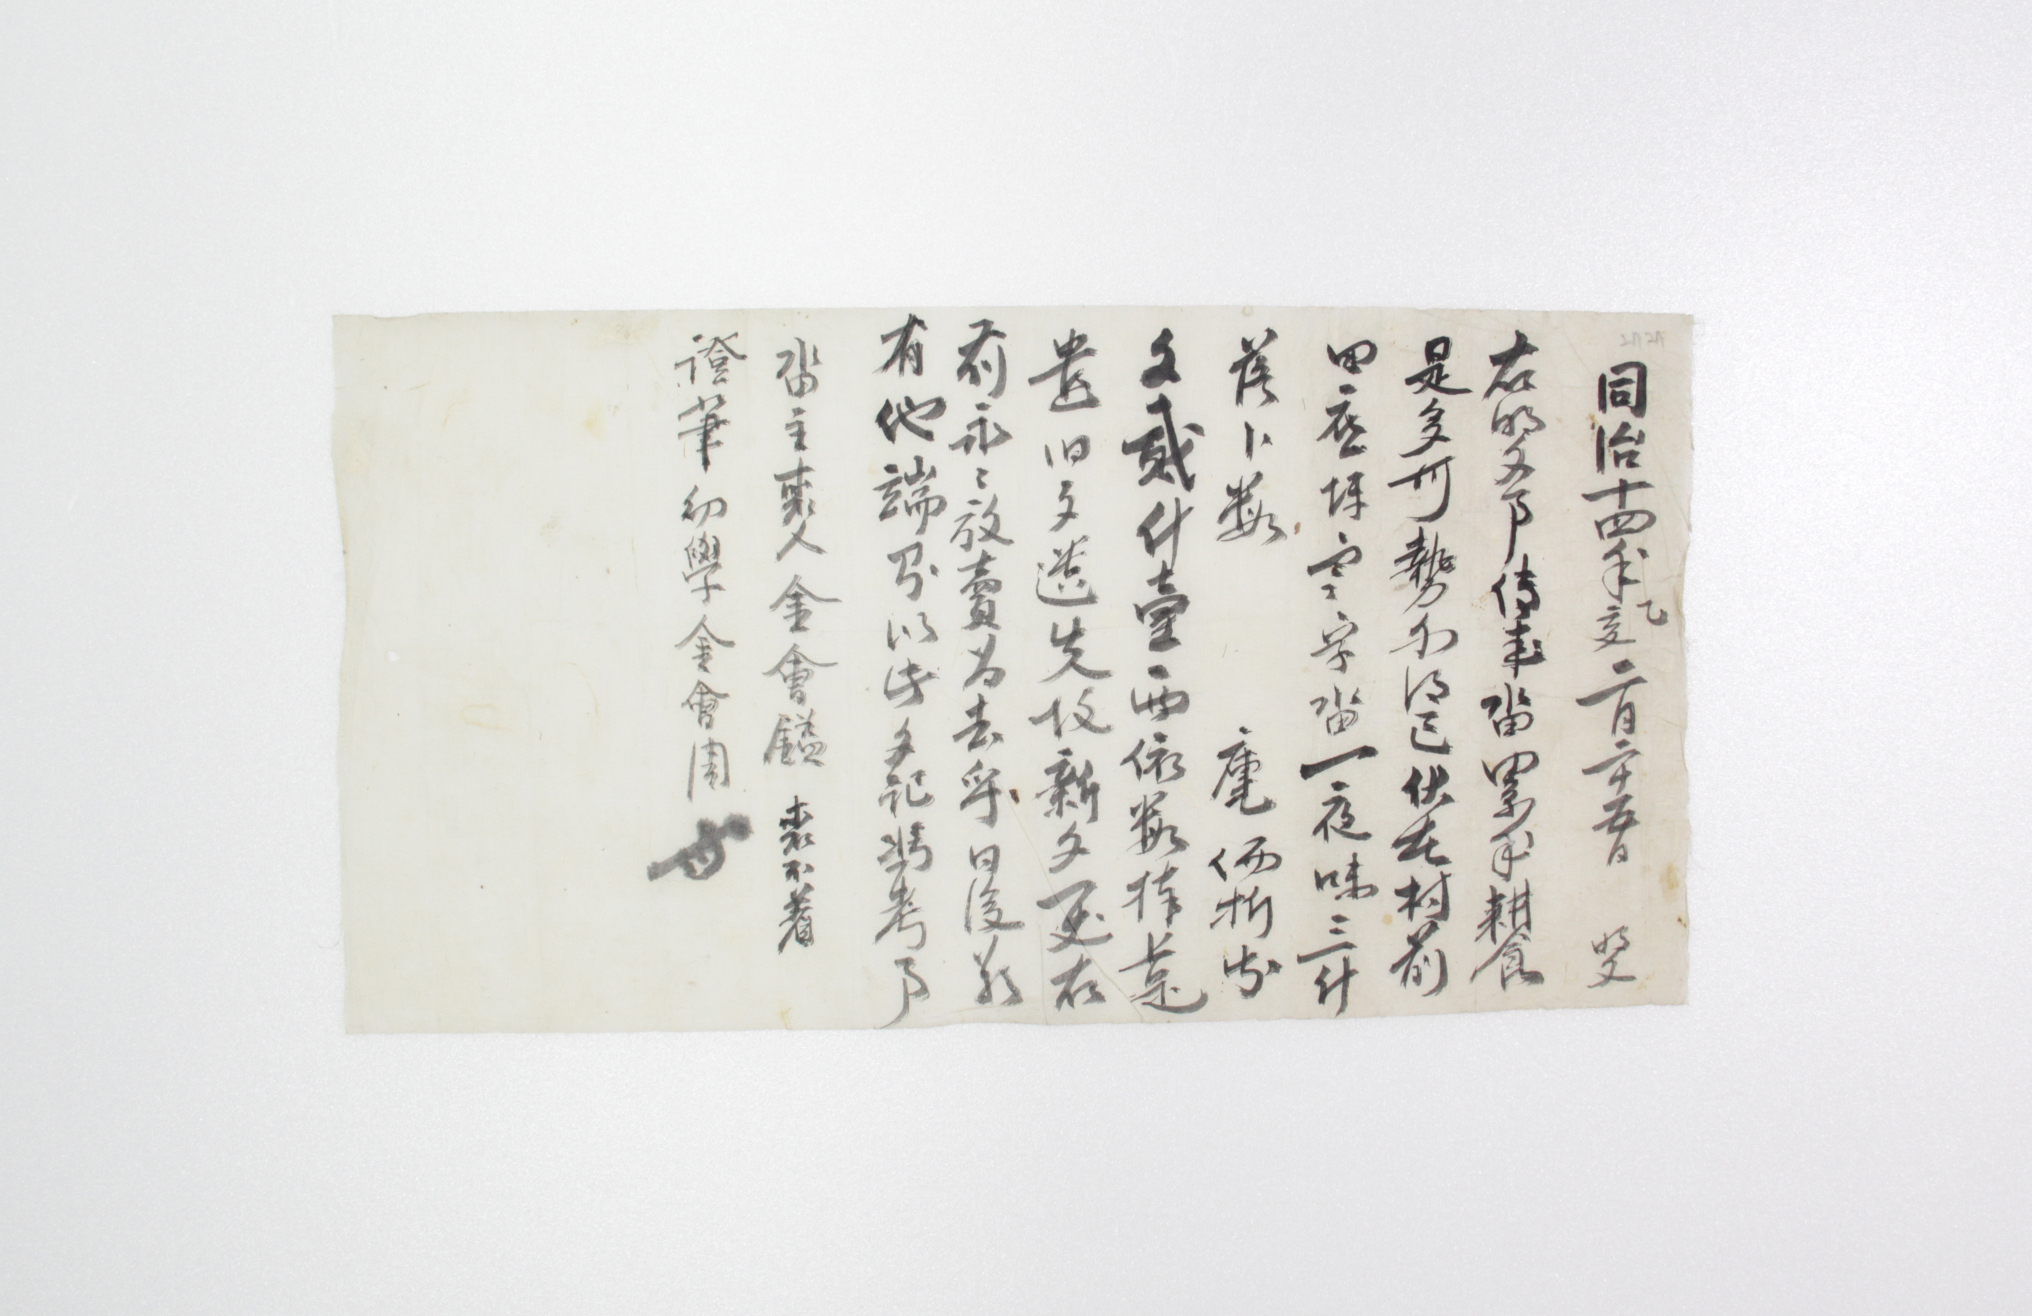 同治十四年乙亥二月二十五日 明文
右明文事傳來畓累年耕食
是多可勢不得已伏在村前
田庄坪字畓一夜味三升
落卜數 庫価折錢
文貳什壹兩依數捧是
遣旧文遺失故新文一丈右
前永〻放賣爲去乎日後若
有他端則以此文記憑考事
畓主喪人金會鎰 喪不着
證筆幼學金會周